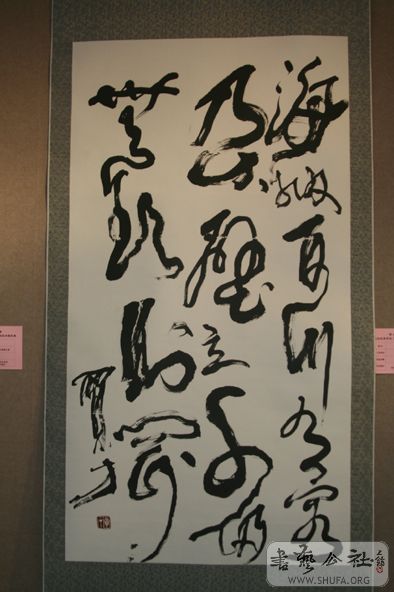 海納百川有容
乃大壁立千仞
無欲則剛
書藝公社
WWW.SHUFA.ORG